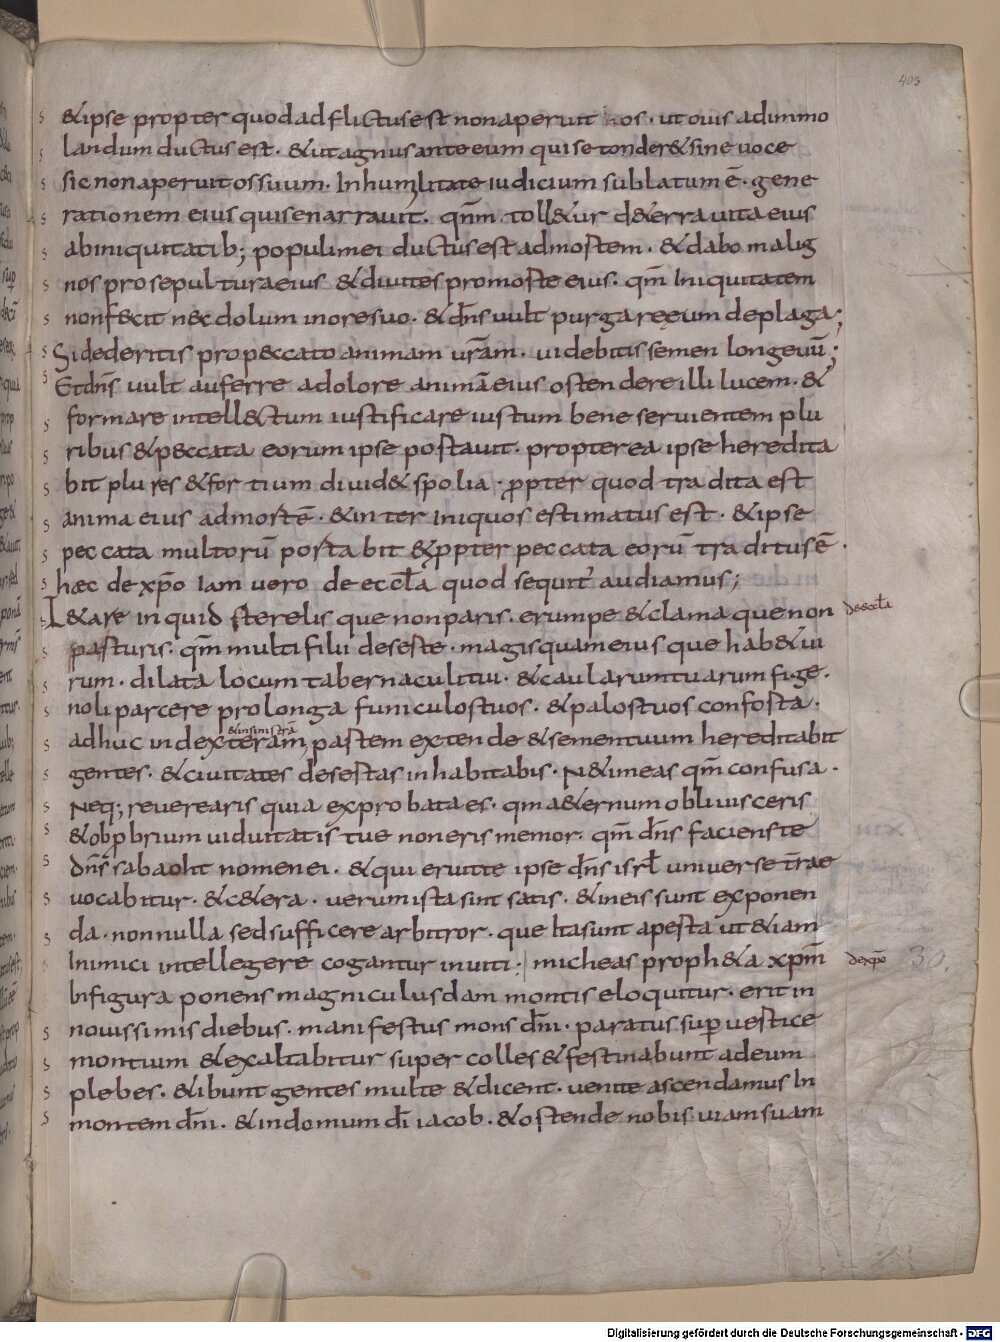 405
&ipse propter quodadflictusest nonaperuit os · ut ouis adimmo
landum ductus est · &utagnus anteeum quisetonder& sine uoce
sic nonaperuit ossuum · Inhumilitate iudicium sublatum ē · gene
rationem eius quisenarrauit · qnm̄ toll&ur d&erra uita eius
abiniquitatib; populimei ductusest admortem · &dabo malig
nos pro sepultura eius &diuites promorte eius · qm̄ Iniquitatem
nonfecit nec dolum inoresuo · &dn̄s uult purgare eum deplaga;
Sidederitis propeccato animam ur̄am · uidebitis semen longeuū;
Etdn̄s uult auferre adolore animā eius ostendere illi lucem · &
formare intellectum iustificare iustum bene seruientem plu
ribus &peccata eorum ipse portauit · propterea ipse heredita
bit plures &fortium diuid& spolia · ꝓpter quod tradita est
anima eius admortē · &inter Iniquos estimatus est · &ipse
peccata multorū portabit &ꝓpter peccata eorū traditus ē ·
hæc de xp̄o Iam uero de eccl̄a quod sequit̄ audiamus;
L&are inquid sterelis que nonparis · erumpe &clama que non
parturis · qm̄ multi filii deserte · magis quameius que hab&ui
rum · dilata locum tabernaculitui · &caularumtuarum fige ·
noli parcere prolonga funiculostuos · &palostuos conforta ·
&insinistrā
adhuc indexteram, partem extende &sementuum hereditabit
gentes · &ciuitates desertas inhabitabis · N&imeas qm̄ confusa ·
Neq; reuerearis quia exprobrata es · qm a&ernum obliuisceris
&obꝓbrium uiduitatis tue noneris memor · qm̄ dn̄s faciens te
dn̄s sabaoht nomen ei · &qui eruit te ipse dn̄s isrl̄ uniuerse tr̄ae
uocabitur · &c&era · uerum ista sint satis · &ineis sunt exponen
da · nonnulla sed sufficere arbitror · que Ita sunt aperta ut &iam
Inimici intellegere cogantur inuiti; micheas proph&a xpm̄
Infigura ponens magni cuiusdam montis eloquitur · erit in
nouissimis diebus · manifestus mons dn̄i · paratus sup uertice
montium &exaltabitur super colles &festinabunt adeum
plebes · &ibunt gentes multe &dicent · uenite ascendamus In
montem dn̄i · &indomum dī iacob · &ostende nobis uiam suam
deeccl̄a
dexp̄o
30.
Digitalisierung gefördert durch die Deutsche Forschungsgemeinschaft - DFG